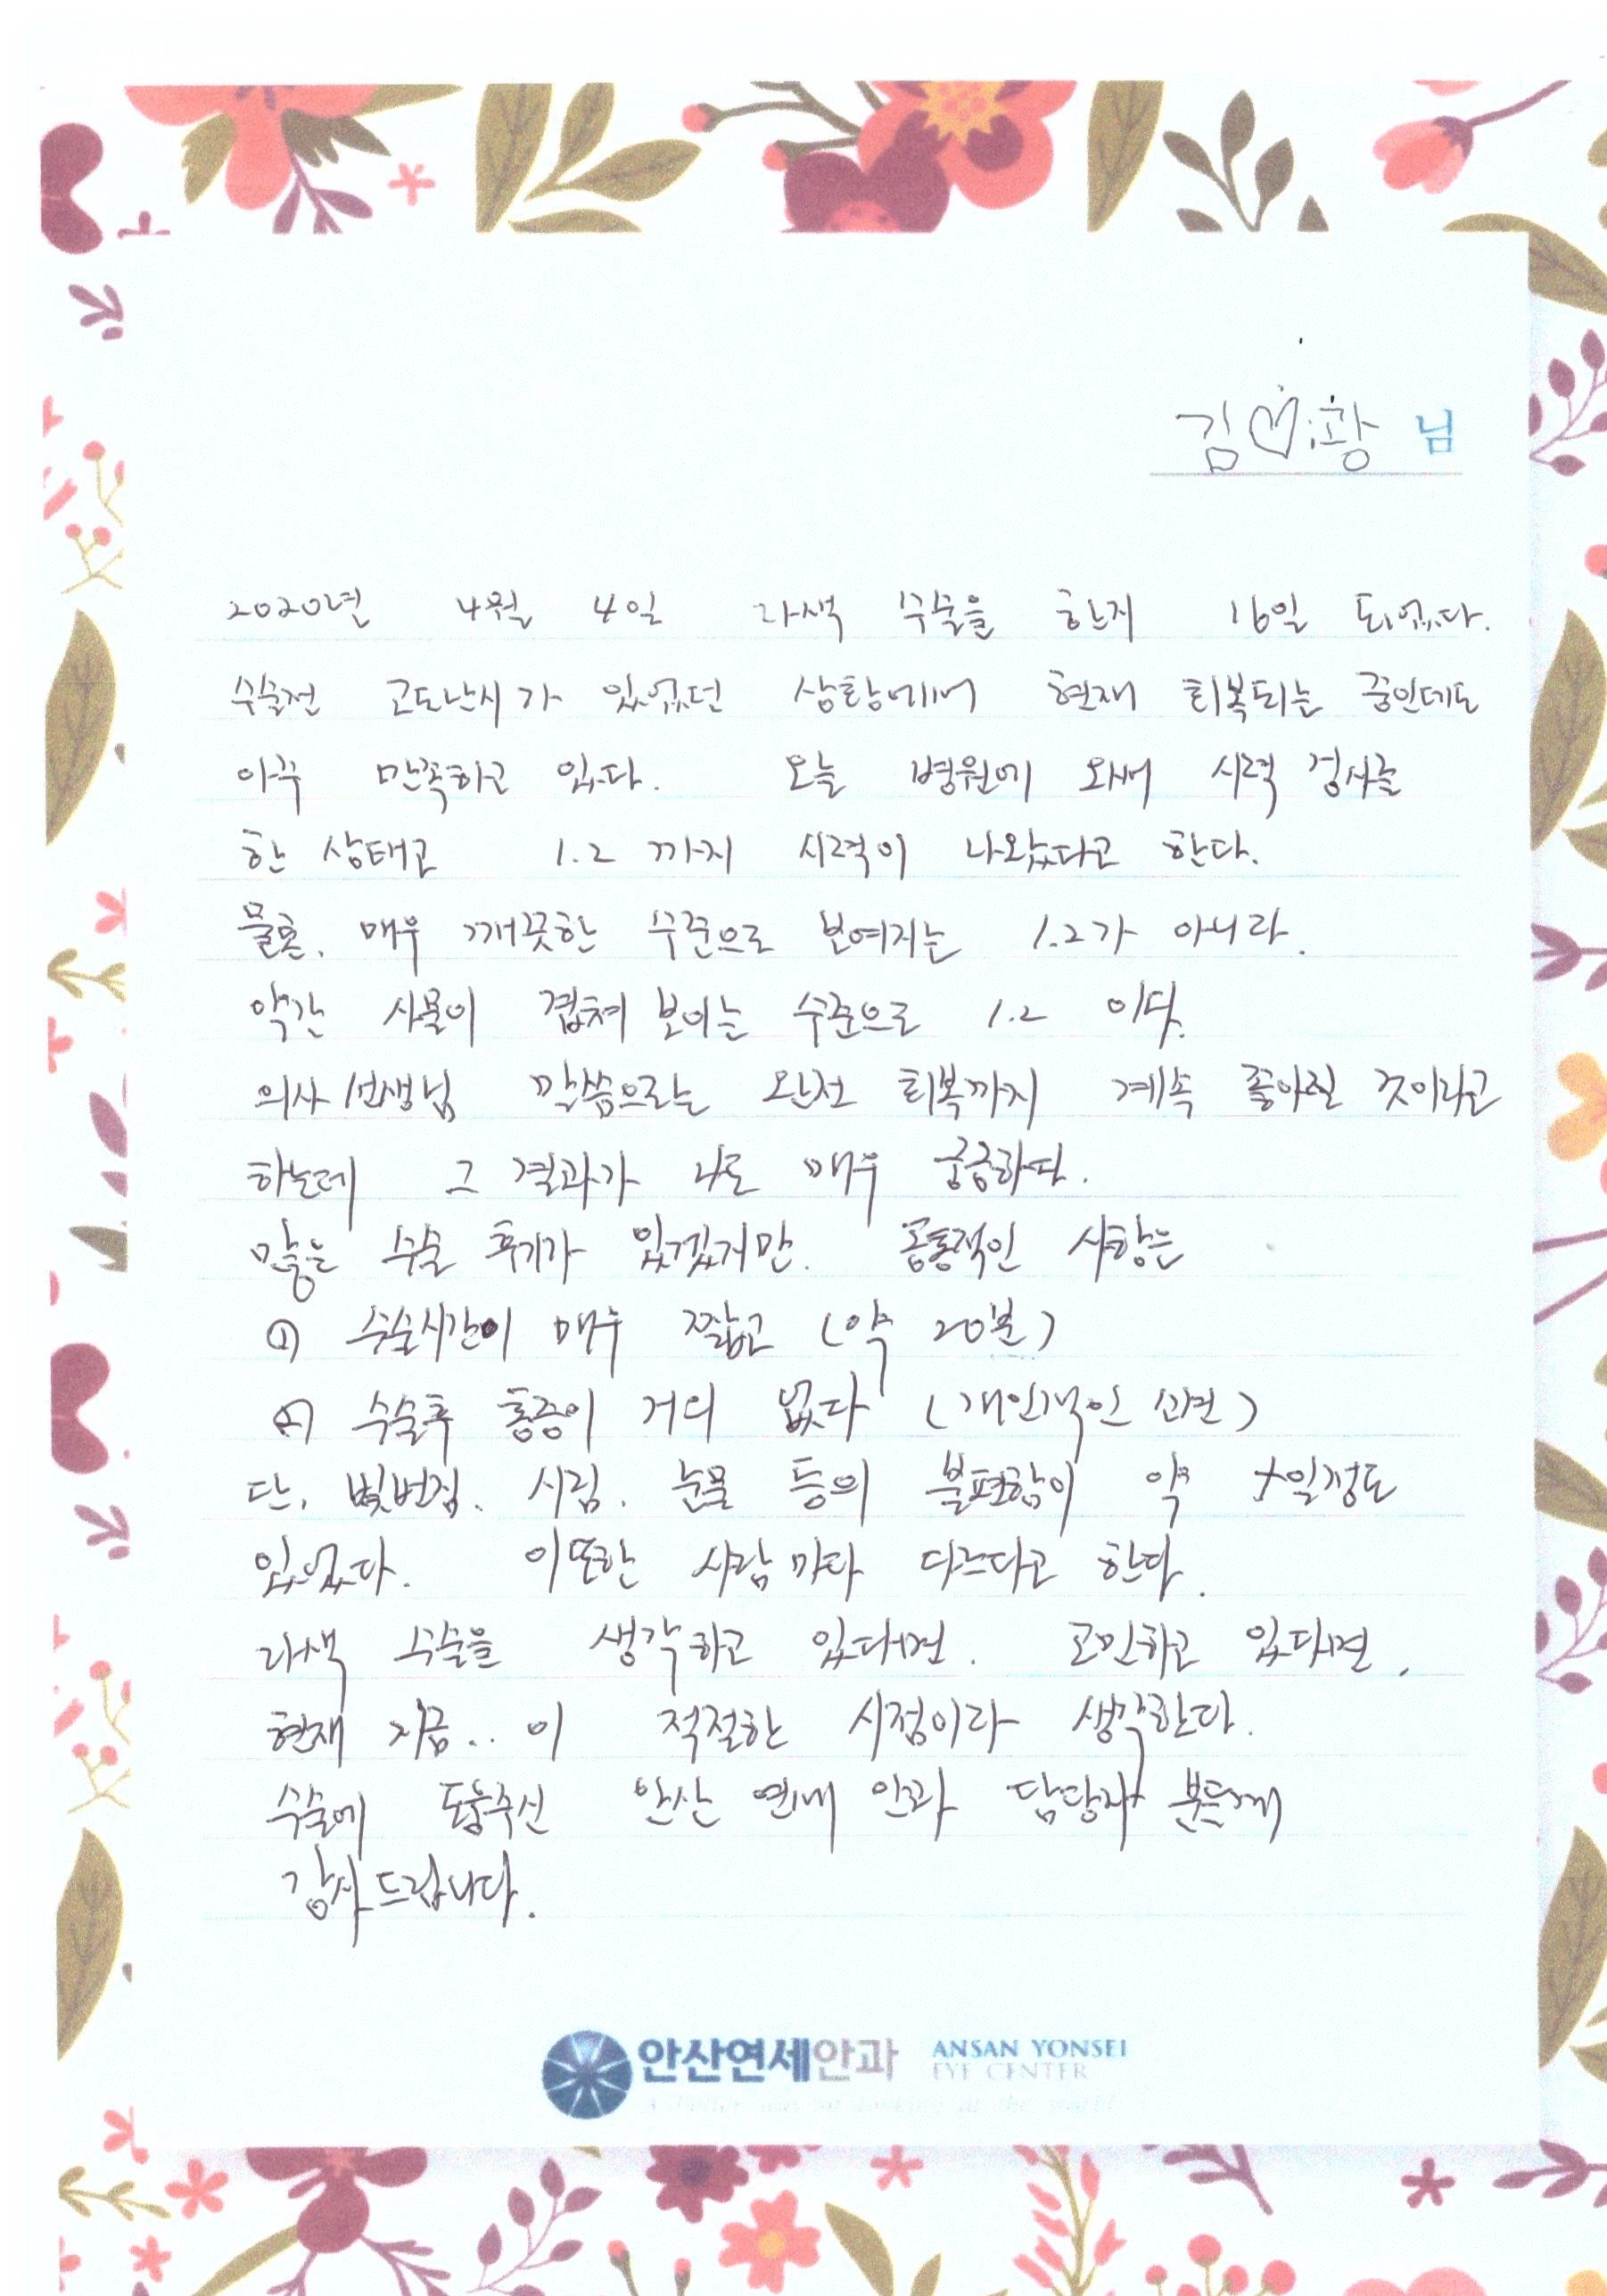 김♡황 님
2020년 4월 4일 라섹 수술을 한지 16일 되었다.
수술전 고도난시가 있었던 상황에서 현재 회복되는 중인데도
아주 만족하고 있다. 오늘 병원에 와서 시력 검사를
한 상태고 1.2 까지 시력이 나왔다고 한다.
물론, 매우 깨끗한 수준으로 보여지는 1.2가 아니라.
약간 사물이 겹쳐 보이는 수준으로 1.2 이다.
의사 선생님 말씀으로는 완전 회복까지 계속 좋아질 것이라고
하는데 그 결과가 나도 매우 궁금하다.
많은 수술 후기가 있겠지만. 공통적인 사항은
수술시간이 매우 짧고 (약 20분)
수술후 통증이 거의 없다 (개인적인 의견)
단, 빛번짐, 시림, 눈물 등의 불편함이 약 일정도
있었다. 이또한 사람 마다 다르다고 한다.
라섹 수술을 생각하고 있다면. 고민하고 있다면,
현재 지금.. 이 적절한 시점이라 생각한다.
수술에 도움주신 안산 연세 안과 담당자 분들께
감사 드립니다.
안산연세안과 ANSAN YONSEI
EYE CENTER